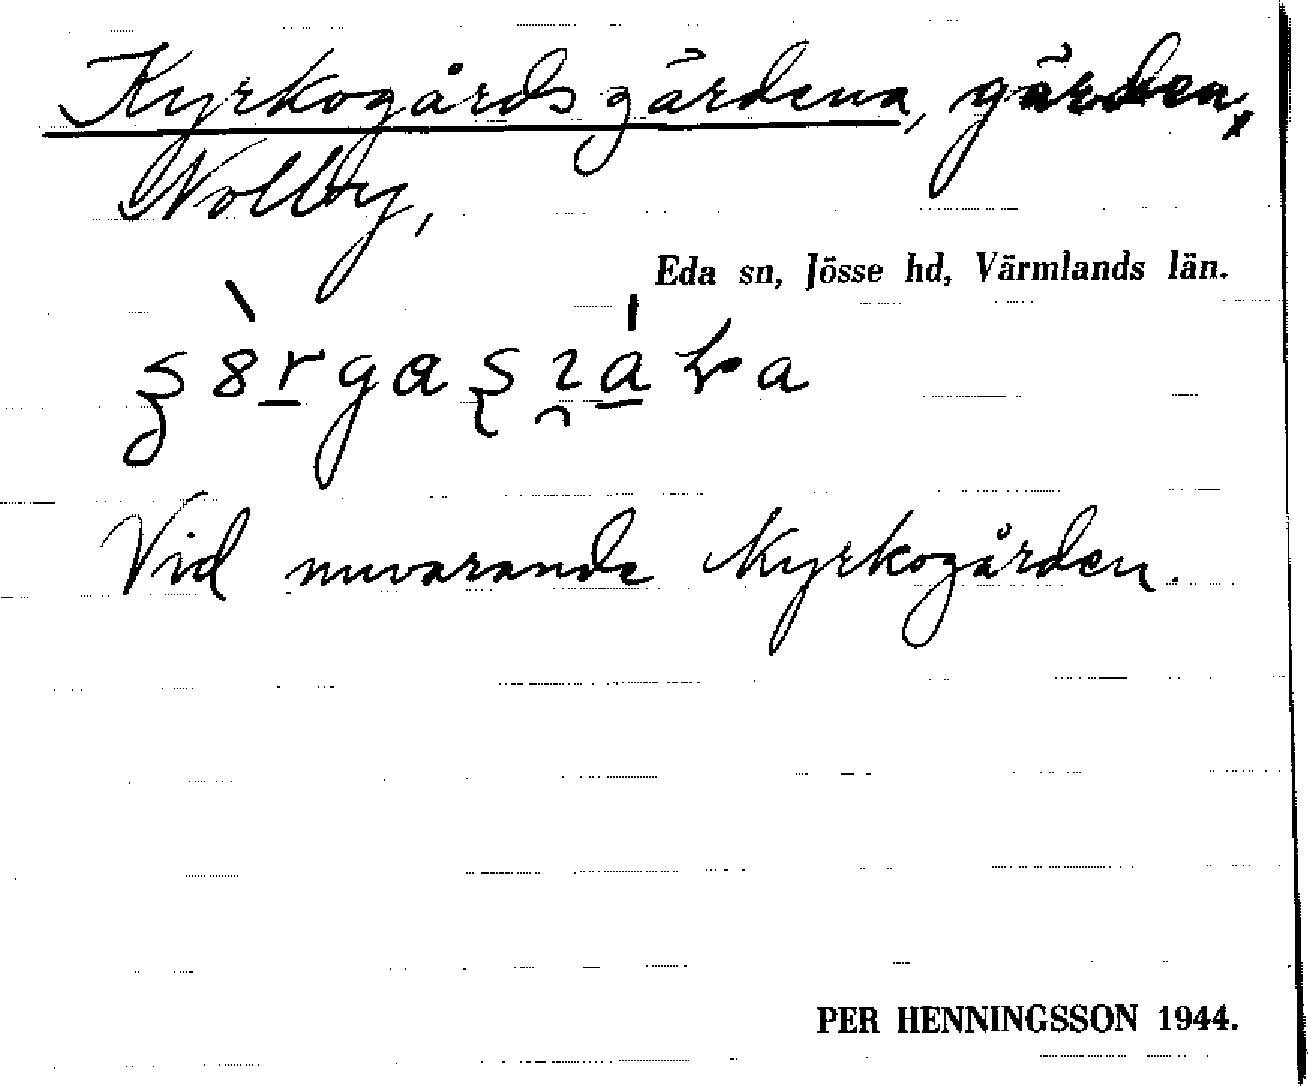 Kyrkogårdsgärdena, gärden,
Nolby,
Eda sn, Jösse hd, Värmlands län.
Vid nuvarande Kyrkogården.
PER HENNINGSSON 1944.